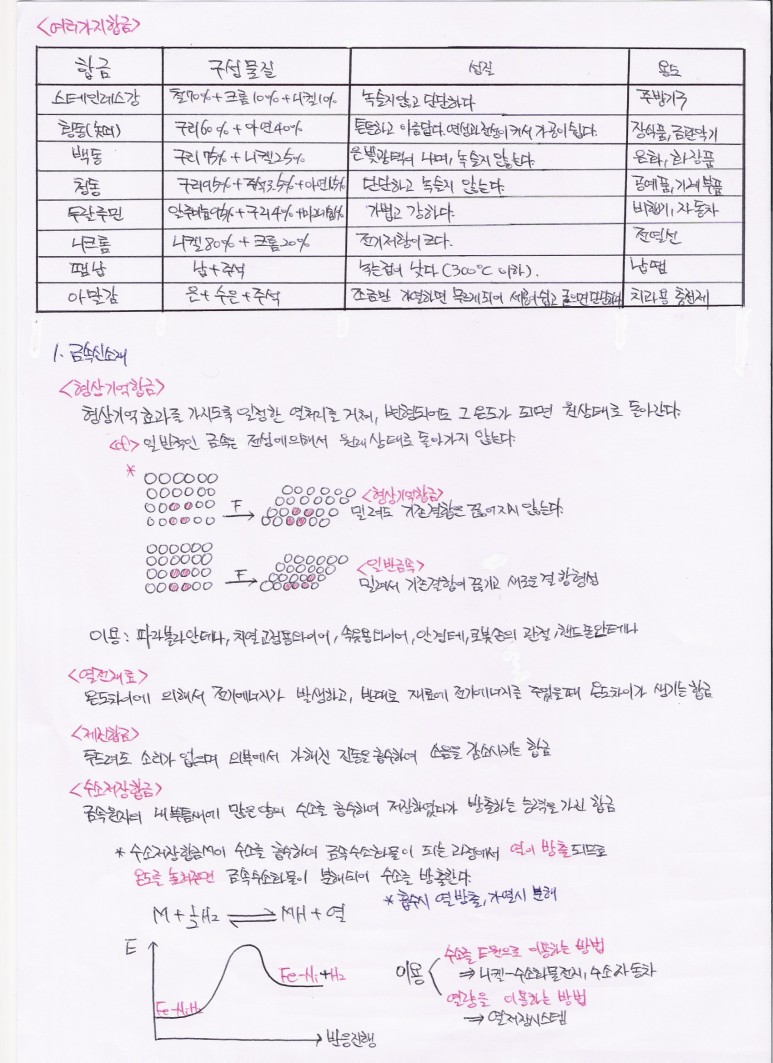 <여러가지합금>
합금 구성물질 성질 용도
스테인레스강 철70%+크롬10%+니켈10% 녹슬지않고 단단하다 주방기구
황동(놋쇠) 구리60%+아연40% 튼튼하고 아름답다. 연성과 전성이 커서 가공이 쉽다. 장식품, 금관악기
백동 구리75%+니켈25% 은빛광택이 나며, 녹슬지 않는다. 은화, 화장품
청동 구리95%+주석3.5%+아연1.5% 단단하고 녹슬지 않는다. 공예품, 기계부품
두랄루민 알루미늄95%+구리4%+마그네슘1% 가볍고 강하다. 비행기, 자동차
니크롬 니켈80%+크롬20% 전기저항이 크다. 전열선
땜납 납+주석 녹는점이 낮다(300℃ 이하). 납땜
아말감 은+수은+주석 조금만 가열하면 무르게되어 세공이 쉽고 굳으면 단단하다 치과용 충전제
1. 금속신소재
<형상기억합금>
형상기억 효과를 가지도록 일정한 열처리를 거쳐, 변형되어도 그 온도가 되면 원상태로 돌아간다.
<cf> 일반적인 금속은 전성에의해서 원래상태로 돌아가지 않는다.
*
F <형상기억합금>
밀려도 기존결합은 끊어지지 않는다.
F <일반금속>
밀려서 기존결합이 끊기고 새로운 결합형성
이용 : 파라볼라안테나, 치열교정용와이어, 속옷용와이어, 안경테, 로봇손의 관절, 핸드폰안테나
<열전재료>
온도차이에 의해서 전기에너지가 발생하고, 반대로 재료에 전기에너지를 주었을때 온도차이가 생기는 합금
<제진합금>
두드려도 소리가 없으며 외부에서 가해진 진동을 흡수하여 소음을 감소시키는 합금
<수소저장합금>
금속원자의 내부틈새에 많은양의 수소를 흡수하여 저장하였다가 방출하는 능력을 가진 합금
* 수소저장합금M이 수소를 흡수하여 금속수소화물이 되는 과정에서 열이 방출되므로
온도를 높여주면 금속수소화물이 분해되어 수소를 방출한다.
* 흡수시 열방출, 가열시 분해
M + ½H₂ ⇌ MH + 열
E
Fe-Ni+H₂
Fe-NiH₂
반응진행
이용
수소를 E원으로 이용하는 방법
⇒ 니켈-수소화물전지, 수소자동차
열량을 이용하는 방법
⇒ 열저장시스템